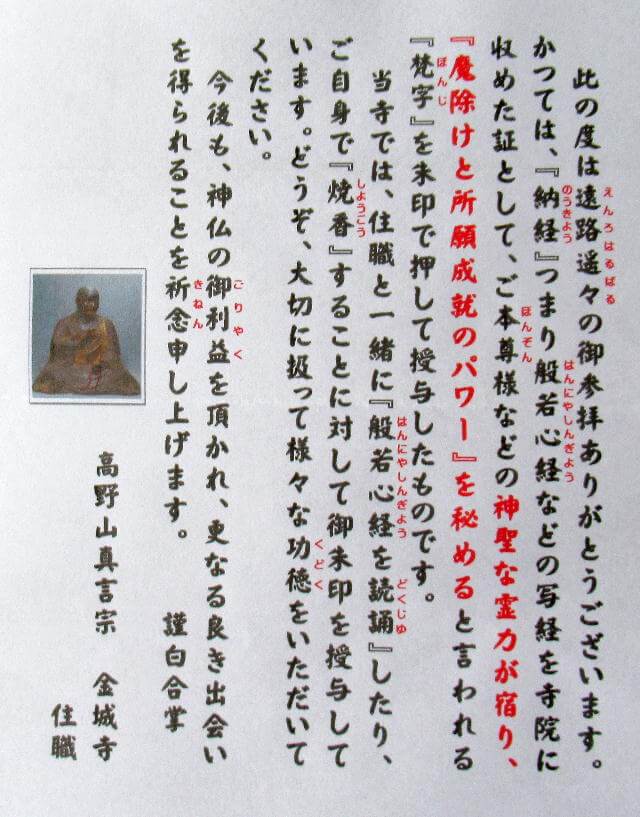 此の度は遠路遥々の御参拝ありがとうございます。
えんろはるばる
かつては、『納経』つまり般若心経などの写経を寺院に
のうきよう
はんにやしんぎよう
収めた証として、ご本尊様などの神聖な霊力が宿り、
ほんぞん
『魔除けと所願成就のパワー』を秘めると言われる
『梵字』を朱印で押して授与したものです。
ぼんじ
当寺では、住職と一緒に『般若心経を読誦』したり、
はんにやしんぎよう
どくじゆ
ご自身で『焼香』することに対して御朱印を授与して
しようこう
います。どうぞ、大切に扱って様々な功徳をいただいて
くどく
ください。
今後も、神仏の御利益を頂かれ、更なる良き出会い
ごりやく
を得られることを祈念申し上げます。 謹白合掌
きねん
高野山真言宗 金城寺
住職